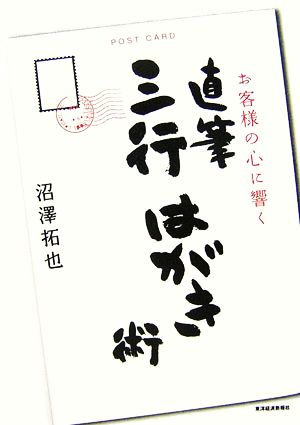 POST CARD
お客様の心に響く
直筆
三行はがき
術
沼澤拓也
東洋経済新報社